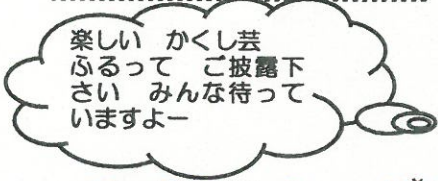 楽しい　かくし芸
ふるって　ご披露下
さい　みんな待って
いますよー